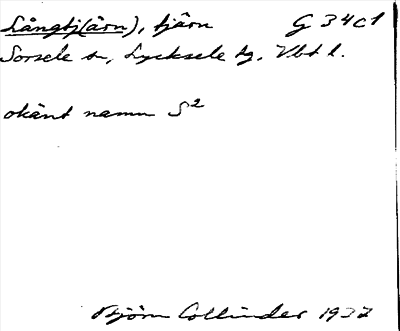 Långtj(ärn), tjärn G 34c1
Sorsele sn, Lycksele tg, Vbt l.
okänt namn S²
Björn Collinder 1937